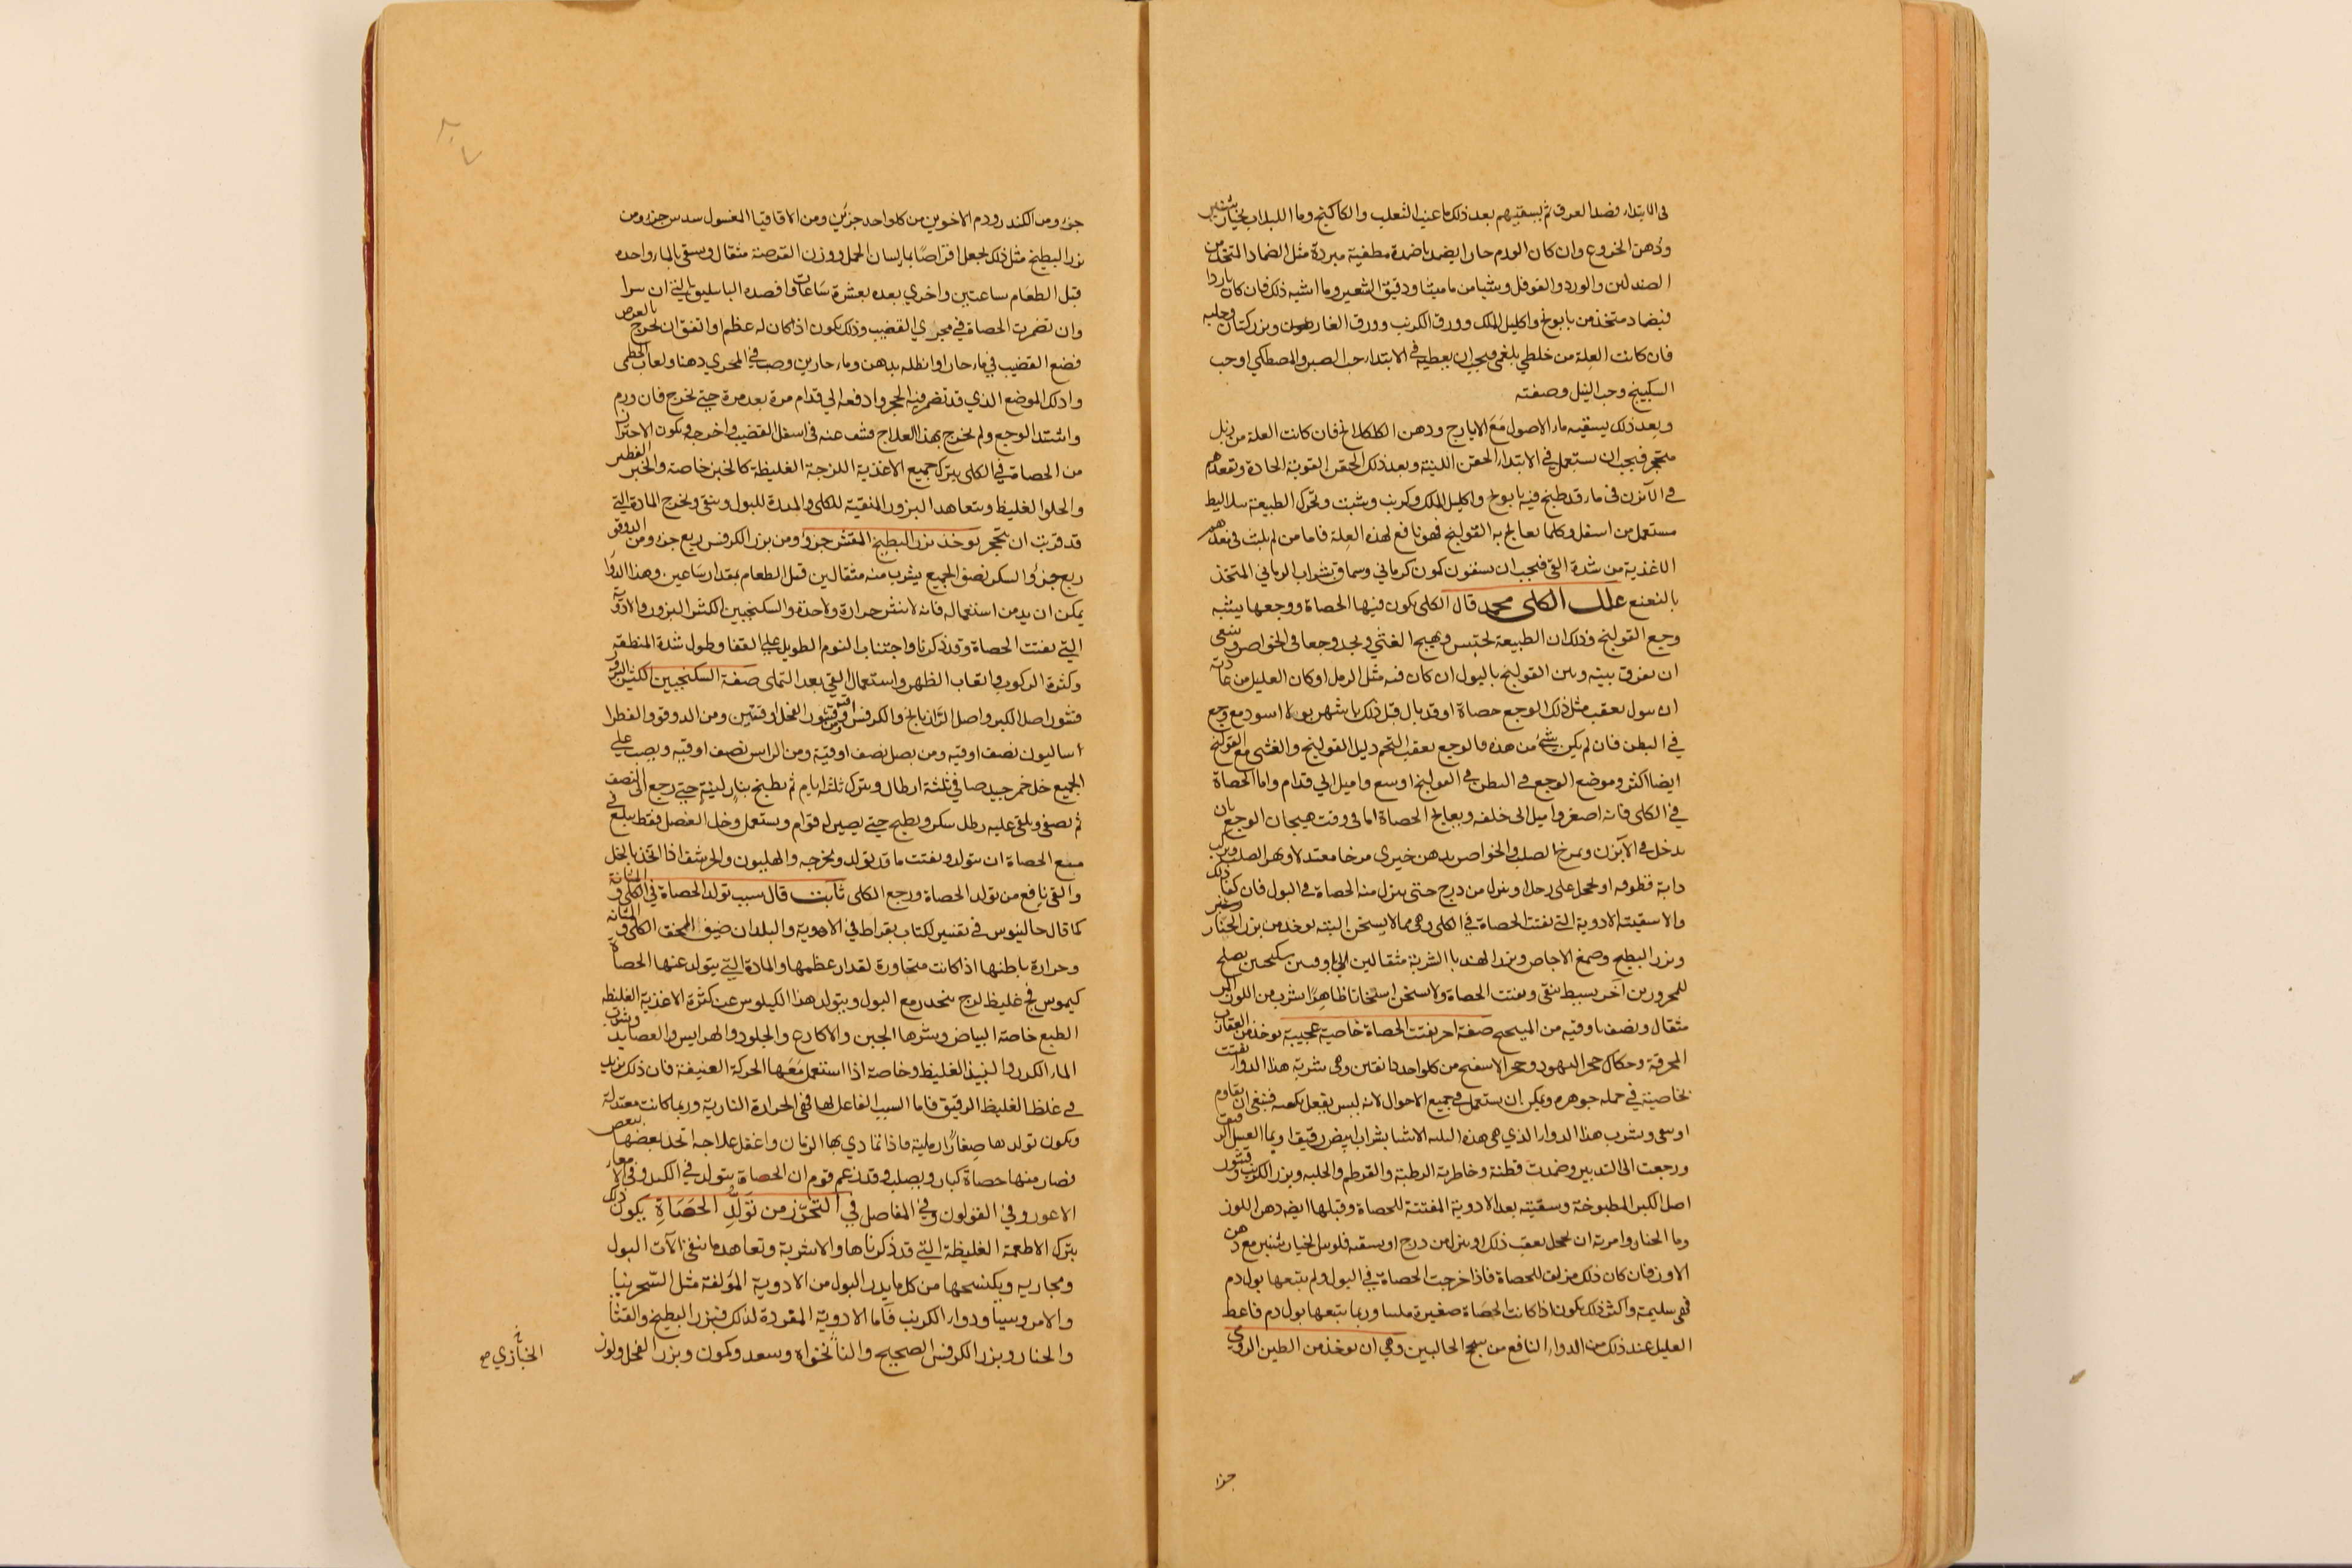 في الابتداء فصد العرق ثم يسقيهم بعد ذلك ماء عنب الثعلب والكاكنج وماء اللبلاب بخيار شنبر
ودهن الخروع وان كان الورم حارا يضمد باضمدة مطفية مبردة مثل الضماد المتخذ من
الصندلين والورد والفوفل وشيا من ماميثا ودقيق الشعير وما اشبه ذلك فان كان باردا
فبضماد متخذ من بابونج واكليل الملك وورق الكرنب وورق الغار وبزر كتان وحلبه
فان كانت العلة من خلط بلغمي فيجب ان يعطيه في الابتداء حب الصبر والمصطكي او حب
السكبينج وحب النيل وصفته
وبعد ذلك يسقيه ماء الاصول مع الايارج ودهن الكلكلانج فان كانت العلة من زبل
متحجر فيجب ان يستعمل في الابتداء الحقن اللينة وبعد ذلك الحقن القوية الحادة وتقعدهم
في الآبزن في ماء قد طبخ فيه بابونج واكليل الملك وكرنب وشبت وتحرك الطبيعة
مستعمل من اسفل وكلما يعالج به القولنج فهو نافع لهذه العلة فاما من لم يلبث في معدهم
الاغذية من شدة القي فيجب ان يسفون كمون كرماني وسماق بشراب الرماني المتخذ
بالنعنع علل الكلى محمد قال الكلى يكون فيها الحصاة ووجعها يشبه
وجع القولنج وذلك ان الطبيعة تحتبس ويهيج الغثي ويجد وجعا في الخواصر وينبغي
ان يفرق بينه وبين القولنج بالبول ان كان فيه مثل الرمل او كان العليل من عادته
ان يبول بعقب مثل ذلك الوجع حصاة او قد بال قبل ذلك باشهر بولا اسود مع وجع
في البطن فان لم يكن شيء من هذه فالوجع بعقب التخم دليل القولنج والغثي مع القولنج
ايضا اكثر وموضع الوجع في البطن في القولنج اوسع واميل الى قدام واما الحصاة
في الكلى فانه اصغر واميل الى خلفه ويعالج الحصاة اما في وقت هيجان الوجع بان
يدخل في الآبزن ويمرخ الصلب والخواصر بدهن خيري مرخا معتدلا
دابة قطوفه او يحجل على رجل او ينزل من درج حتى ينزل منه الحصاة في البول فان كفا ذلك
والا سقيته الادوية التي تفتت الحصاة في الكلى وهي مما لا يسخن البتة يوخذ من بزر الخيار
وبزر البطيخ وصمغ الاجاص وبزر الهندبا الشربة مثقالين
للمحرورين آخر بسيط ينقي ويفتت الحصاة ولا يسخن اسخانا ظاهرا يشرب من اللوز المر
مثقال ونصف باوقيه من صفة اخر يفتت الحصاة خاصية عجيبة يوخذ من العقارب
المحرقة وحكاك حجر اليهود وحجر الاسفنج من كل واحد دانقين وهي شربة هذا الدواء يفتت
بخاصية في جملة جوهره ويمكن ان يستعمل في جميع الاحوال لانه ليس يفعل
او سقي وتشرب هذا الدواء الذي هي هذه الثلثه الاشيا بشراب ابيض رقيق او بماء العسل
ورجعت الى التدبير وضمدت قطنه وخاطرته الرطبة والقرطم والحلبه وبزر الكرنب وقشور
اصل الكبر المطبوخة وسقيته بعد الادوية المفتتة للحصاة وقبلها ايضا دهن اللوز
وماء الخيار وامرته ان يحجل بعقب ذلك او ينزل من درج او يسقيه فلوس الخيار شنبر مع دهن
الاوز فان كان ذلك مزلق للحصاة فاذا خرجت الحصاة في البول ولم يتبعها بول دم
فهي سليمة واكثر ذلك يكون اذا كانت الحصاة صغيرة ملسا وربما يتبعها بول دم فاعط
العليل عند ذلك من الدواء النافع من سحج الحالبين وهي ان يوخذ من الطين الرومي
جزا
جزو ومن الكندر ودم الاخوين من كل واحد جزئين ومن الاقاقيا المغسول سدس جزو ومن
بزر البطيخ مثل ذلك يجعل اقراصا بماء لسان الحمل ووزن القرصة مثقال ويسقى بالماء واحده
قبل الطعام ساعتين واخرى بعده بعشرة ساعات وافصده الباسليق بالتي ان سرا
وان تضمرت الحصاة في مجرى القضيب وذلك يكون اذا كان له عظم او اتفق ان يخرج بالعرض
فضع القضيب في ماء حار او انطله بدهن وماء حارين وصب في المجرى دهنا ولعاب الخطمى
وادلك الموضع الذي قد تضمر فيه الحجر وادفعه الى قدام مرة بعد مرة حتى يخرج فان ورم
واشتد الوجع ولم يخرج بهذا العلاج فشق عنه في اسفل القضيب واخرجه ويكون الاحتراز
من الحصاة في الكلى بترك جميع الاغذية اللزجة الغليظة كالخبز خاصة والخبز الفطير
والحلوا الغليظ ويتعاهد البزور المنقية للكلى والمدرة للبول وينقي ويخرج المادة التي
قد قربت ان تتحجر يوخذ بزر البطيخ المقشر جزو ومن بزر الكرفس ربع جزو ومن الدوقو
ربع جزو والسكر نصف الجميع يشرب منه مثقالين قبل الطعام بمقدار ساعتين وهذا الدوا
يمكن ان يدمن استعماله فانه لا ينشر حرارة ولا حدة والسكنجبين الكثير البزور والادوية
التي تفتت الحصاة وقد ذكرنا واجتناب النوم الطويل على القفا وطول شدة المنطقه
وكثرة الركوب واتعاب الظهر واستعمال القي بعد التملى صفة السكنجبين الكثير البزور
قشور اصل الكبر واصل الرازيانج والكرفس وقشور الفجل اوقيتين ومن الدوقو والفطرا
اساليون نصف اوقيه ومن بصل نصف اوقية ومن الراس نصف اوقيه ويصب على
الجميع خل خمر جيد صافي ثلثة ارطال ويترك ثلثة ايام ثم يطبخ بنار لينة حتى يرجع الى النصف
ثم يصفى ويلقى عليه رطل سكر ويطبخ حتى يصير له قوام ويستعمل وخل العنصل فقط يبلغ في
منع الحصاة ان يتولد ويفتت ما قد تولد ويخرجه والهليون والحرشف اذا اتخذ بالخل
والقي نافع من تولد الحصاة ووجع الكلى ثابت قال سبب تولد الحصاة في الكلى والمثانة
كما قال جالينوس في تفسير لكتاب بقراط في الاهوية والبلدان ضيق المخنق الكلى والمثانه
وحرارة باطنها اذا كانت متجاورة لقدار عظمها والمادة التي يتولد عنها الحصاة
كيموس فج غليظ لزج ينحدر مع البول ويتولد هذا الكيلوس عن كثرة الاغذية الغليظه
الطبع خاصة البياض وشرها الجبن والاكارع والجلود والهرايس والعصايد وشراب
الماء الكدر والنبيذ الغليظ وخاصة اذا استعمل معها الحركة العنيفة فان ذلك يزيد
في غلظ الغليظ الرقيق فاما السبب الفاعل لها فهي الحرارة النارية وربما كانت معتدلة
ويكون تولدها صغارا رملية فاذا تمادى بها الزمان واغفل علاجه اتحد بعضها ببعض
فصار منها حصاة كبار ويصلب وقد زعم قوم ان الحصاة يتولد في الكبد وفي الامعاء
الاعور وفي القولون وفي المفاصل في التحرز من تولد الحصاة يكون ذلك
بترك الاطعمة الغليظة التي قد ذكرناها والاشربة وتعاهد ما ينقي آلات البول
ومجاريه ويكنسحها من كل ما يدر البول من الادوية المؤلفة مثل الشجرنيا
والامروسيا ودواء الكرنب فاما الادوية المفردة لذلك فبزر البطيخ والقثا
والخيار وبزر الكرفس الصحيح والنانخواه وسعد وكمون وبزر الفجل ولوز
الخبازي صح